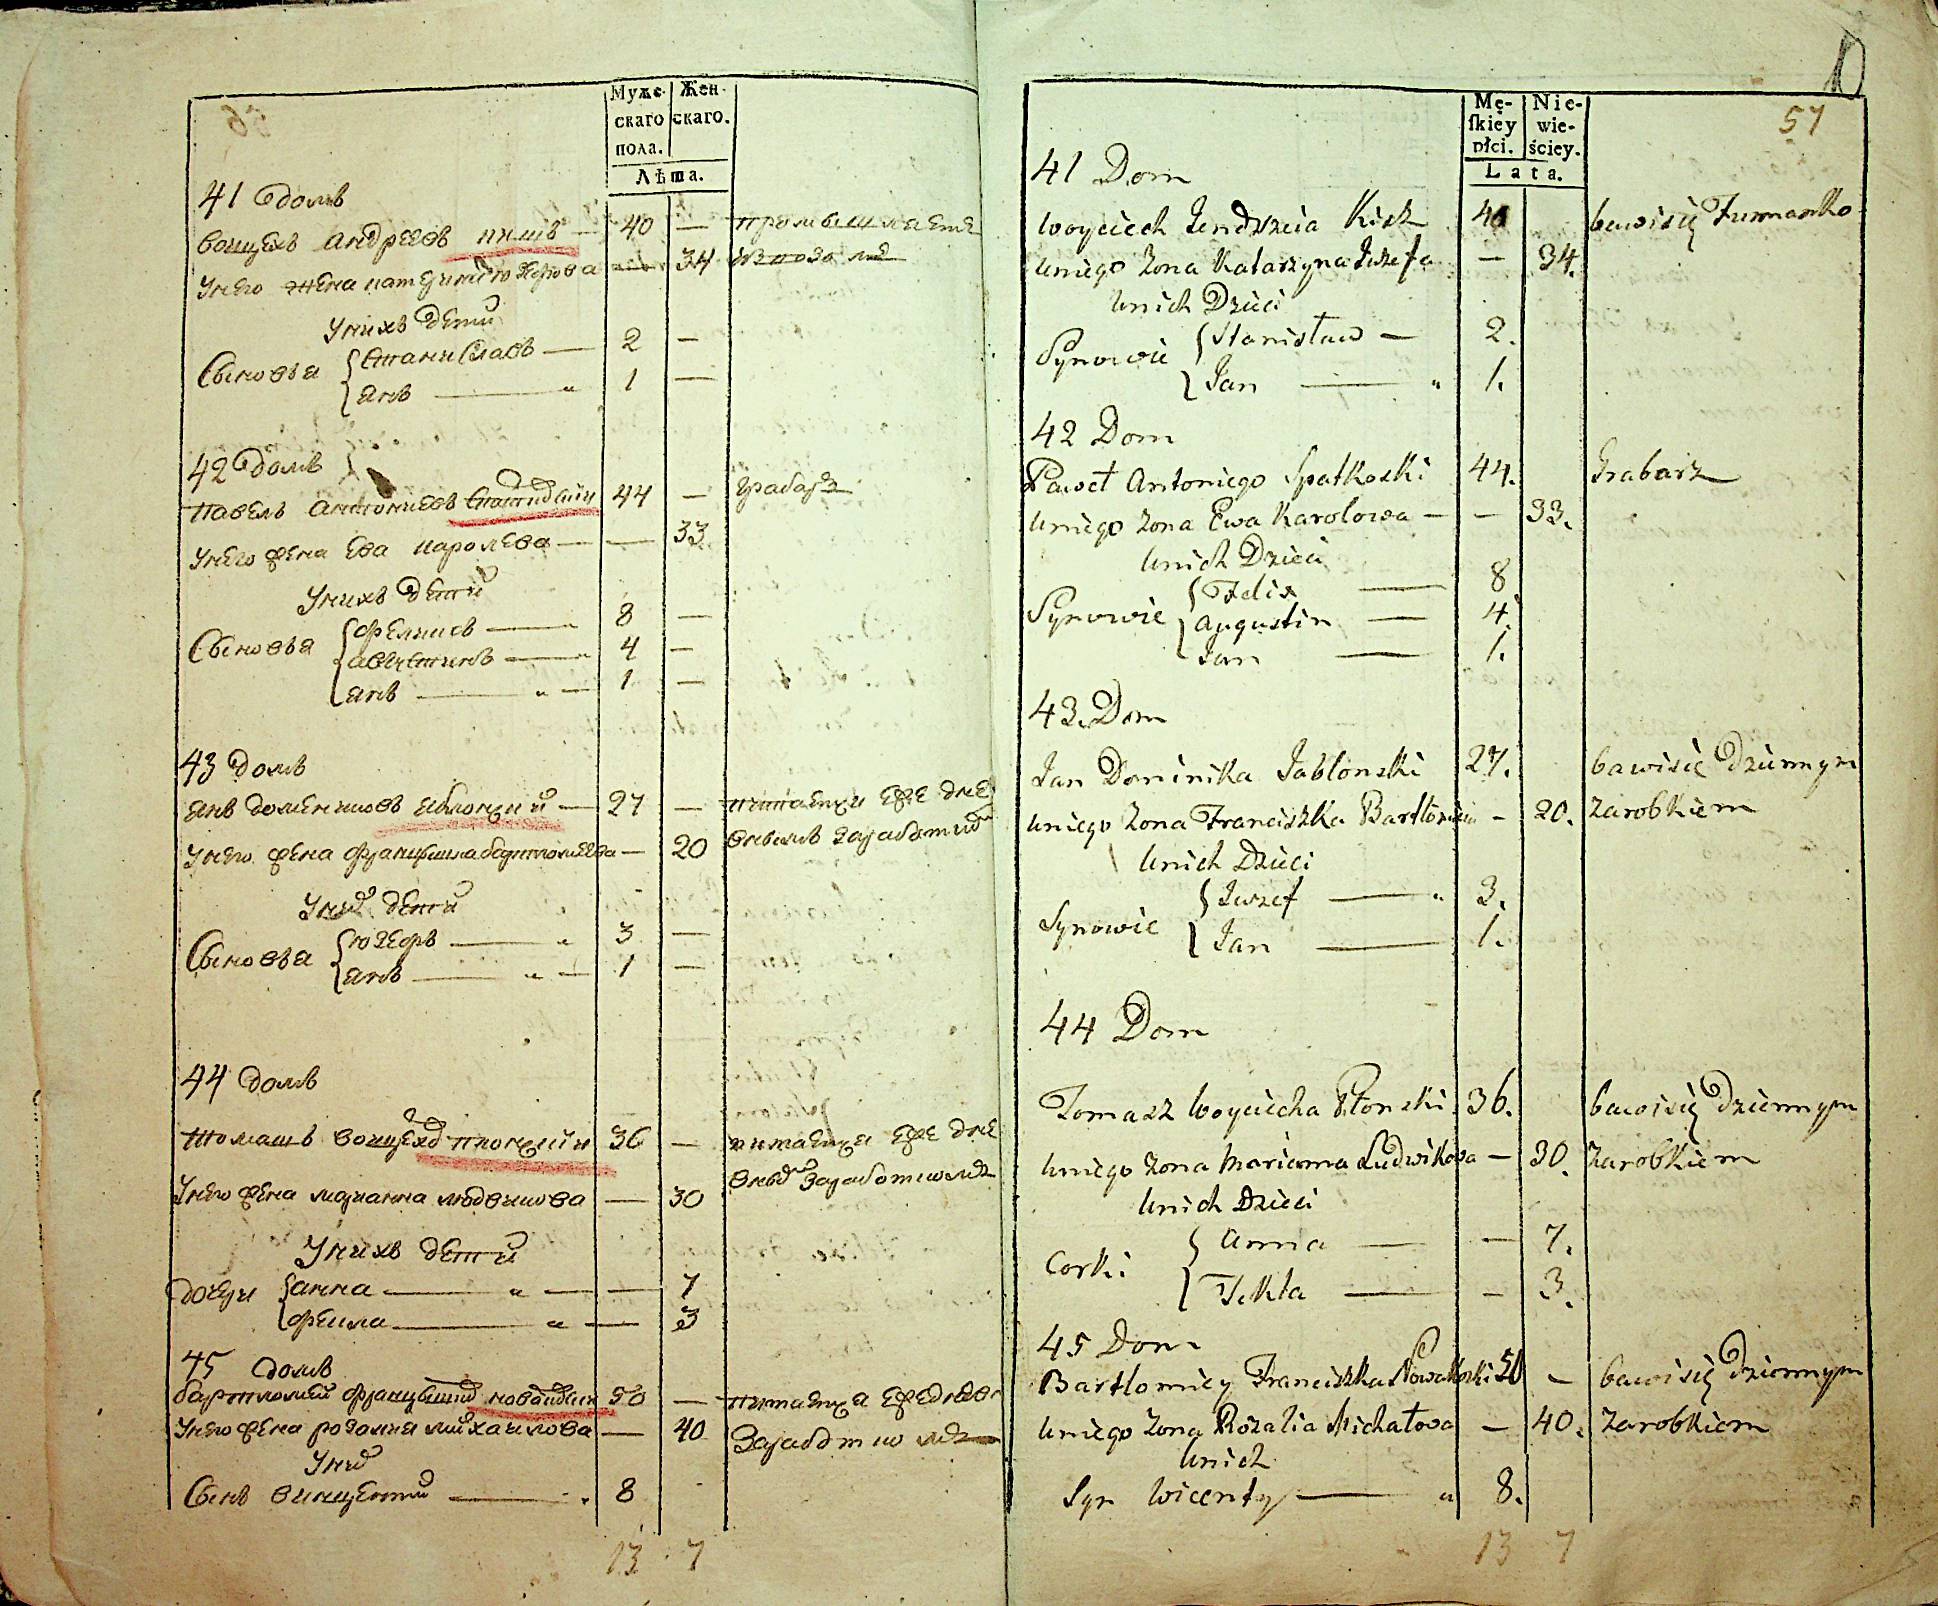 56
Муже-
скаго
пола.
Жен-
скаго.
Лѣта.
41 домъ
Войцехъ Андреевъ кишъ — 40 — промышляетъ
У него жена катерина юзефова — 34 извозомъ
У нихъ дети
Сыновья { Станиславъ — 2 —
янъ — „ 1 —
42 домъ
Павелъ Антониевъ 44 — грабарз
У него жена Ева каролева — — 33
У нихъ дети
Сыновья { феликсъ — 8 —
августинъ — „ 4 —
янъ — „ — 1 —
43 домъ
янъ доминиковъ яблонский — 27 — питается еже дне
У него жена францишка бартломеева — 20 внымъ заработко
У них дети
Сыновья { юзефъ — „ 3 —
янъ — „ — 1 —
44 домъ
томашъ войцехов плонский 36 — питается еже дне
вным заработкомъ
У него жена марианна людвикова — 30
У нихъ дети
дочери { анна — „ — — 7
фекла — „ — 3
45 домъ
бартломей францишков новаковски 50 — питается ежеднев
У него жена розалия михаилова — 40 заработкомъ
У них
Сынъ винцентий — „ 8
13 7
57
Mę-
skiey
płci.
Nie-
wie-
ściey.
Lata.
41 Dom
Woyciech Jendrzeia Kisz 40 bawi się Furmanko
u niego Zona Katarzyna Juzefa — 34.
u nich Dzieci
Synowie { Stanisław — 2.
Jan — „ 1.
42 Dom
Paweł Antoniego Spatkoski 44. Grabarz
u niego Zona Ewa Karolowa — — 33.
u nich Dzieci
Synowie { Felix — 8
Augustin — 4.
Jan — 1.
43. Dom
Jan Dominika Jablonski 27. bawi się Dziennym
u niego Zona Franciszka Bartłomieia — 20. Zarobkiem
u nich Dzieci
Synowie { Juzef — „ 3.
Jan — 1.
44 Dom
Tomasz Woyciecha Płonski 36. bawi się Dziennym
u niego Zona Marianna Ludwikowa — 30. Zarobkiem
u nich Dzieci
Corki { Anna — — 7.
Tekla — — 3.
45 Dom
Bartlomiey Franciszka Nowakoski 50 — bawi się Dziennym
u niego Zona Rozalia Michałowa — 40. Zarobkiem
u nich
Syn Wicenty — „ 8.
13 7